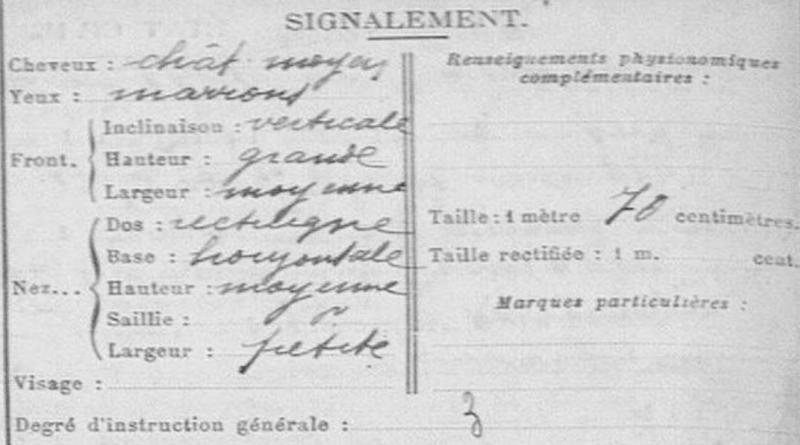 SIGNALEMENT.
Cheveux : chât moyen
Yeux : marrons
Front.
Inclinaison : verticale
Hauteur : grande
Largeur : moyenne
Nez...
Dos : rectiligne
Base : horizontale
Hauteur : moyenne
Saillie :
Largeur : petite
Visage :
Renseignements physionomiques
complémentaires :
Taille : 1 mètre 70 centimètres.
Taille rectifiée : 1 m. cent.
Marques particulières :
Degré d'instruction générale : 3